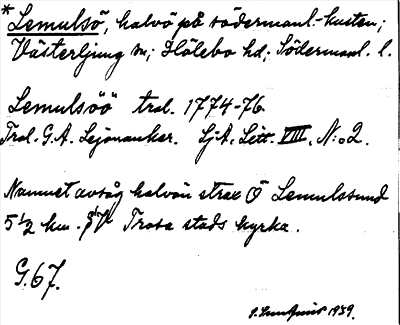 * Lemulsö, halvö på södermanl-kusten;
Västerljung sn; Hölebo hd; Södermanl. l.
Lemulsöö tral. 1774-76.
Tral. G. A. Lejonanker. Sj.A. Litt. VIII. N:o 2.
Namnet avsåg halvön strax Ö Lemulssund
5 1/2 km. SV Trosa stads kyrka.
G.67.
1939.